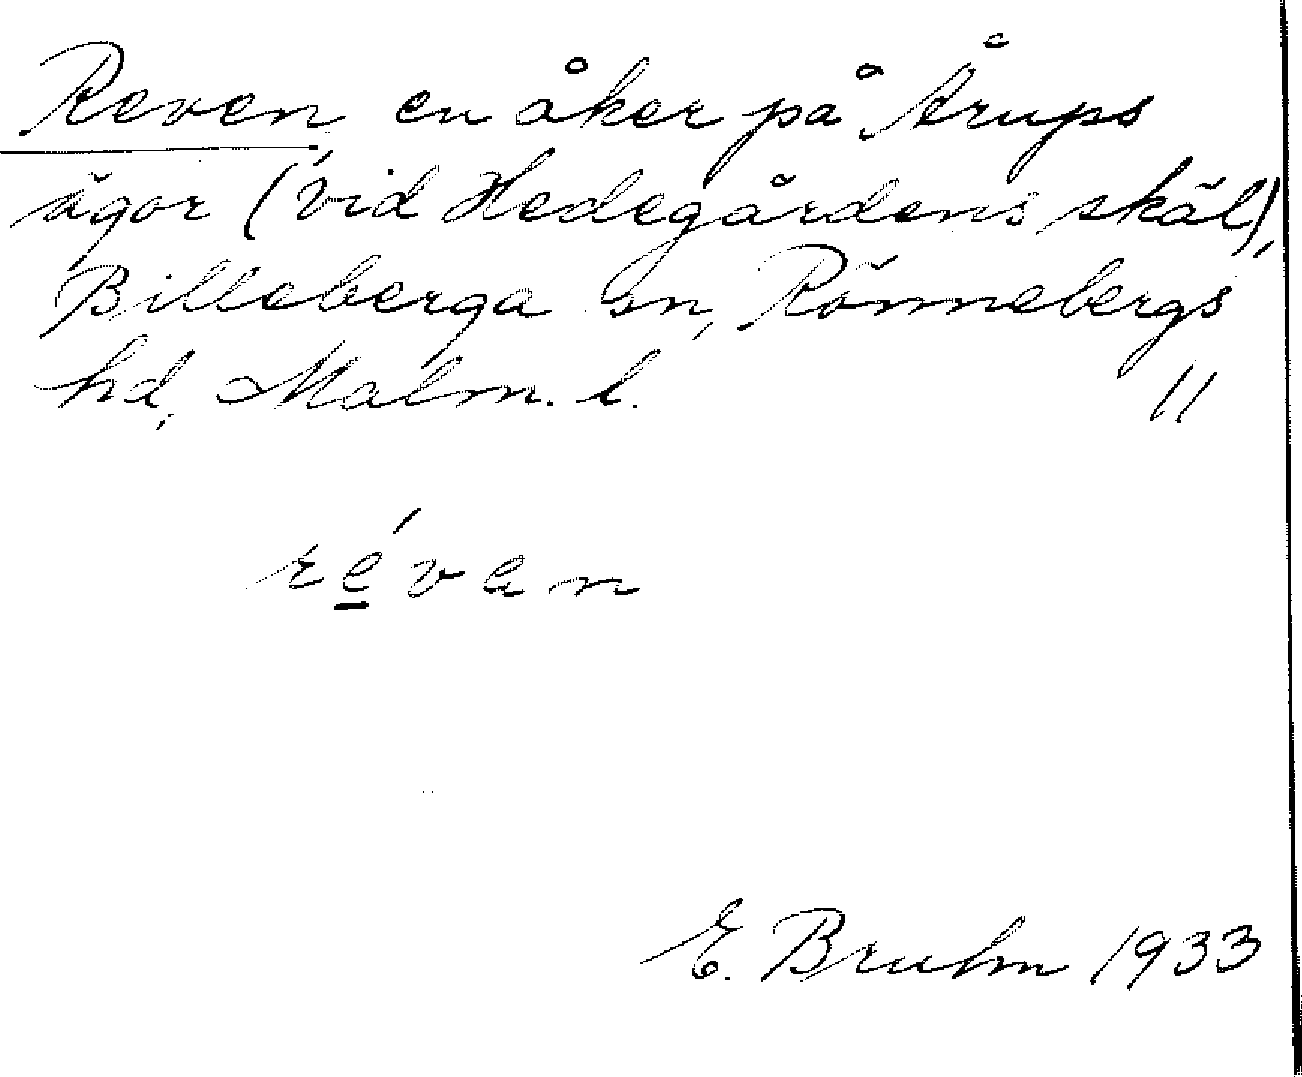 Reven en åker på Årups
ägor (vid Hedegårdens skäl),
Billeberga sn, Rönnebergs
hd, Malm. l. 11
révan
E. Bruhn 1933